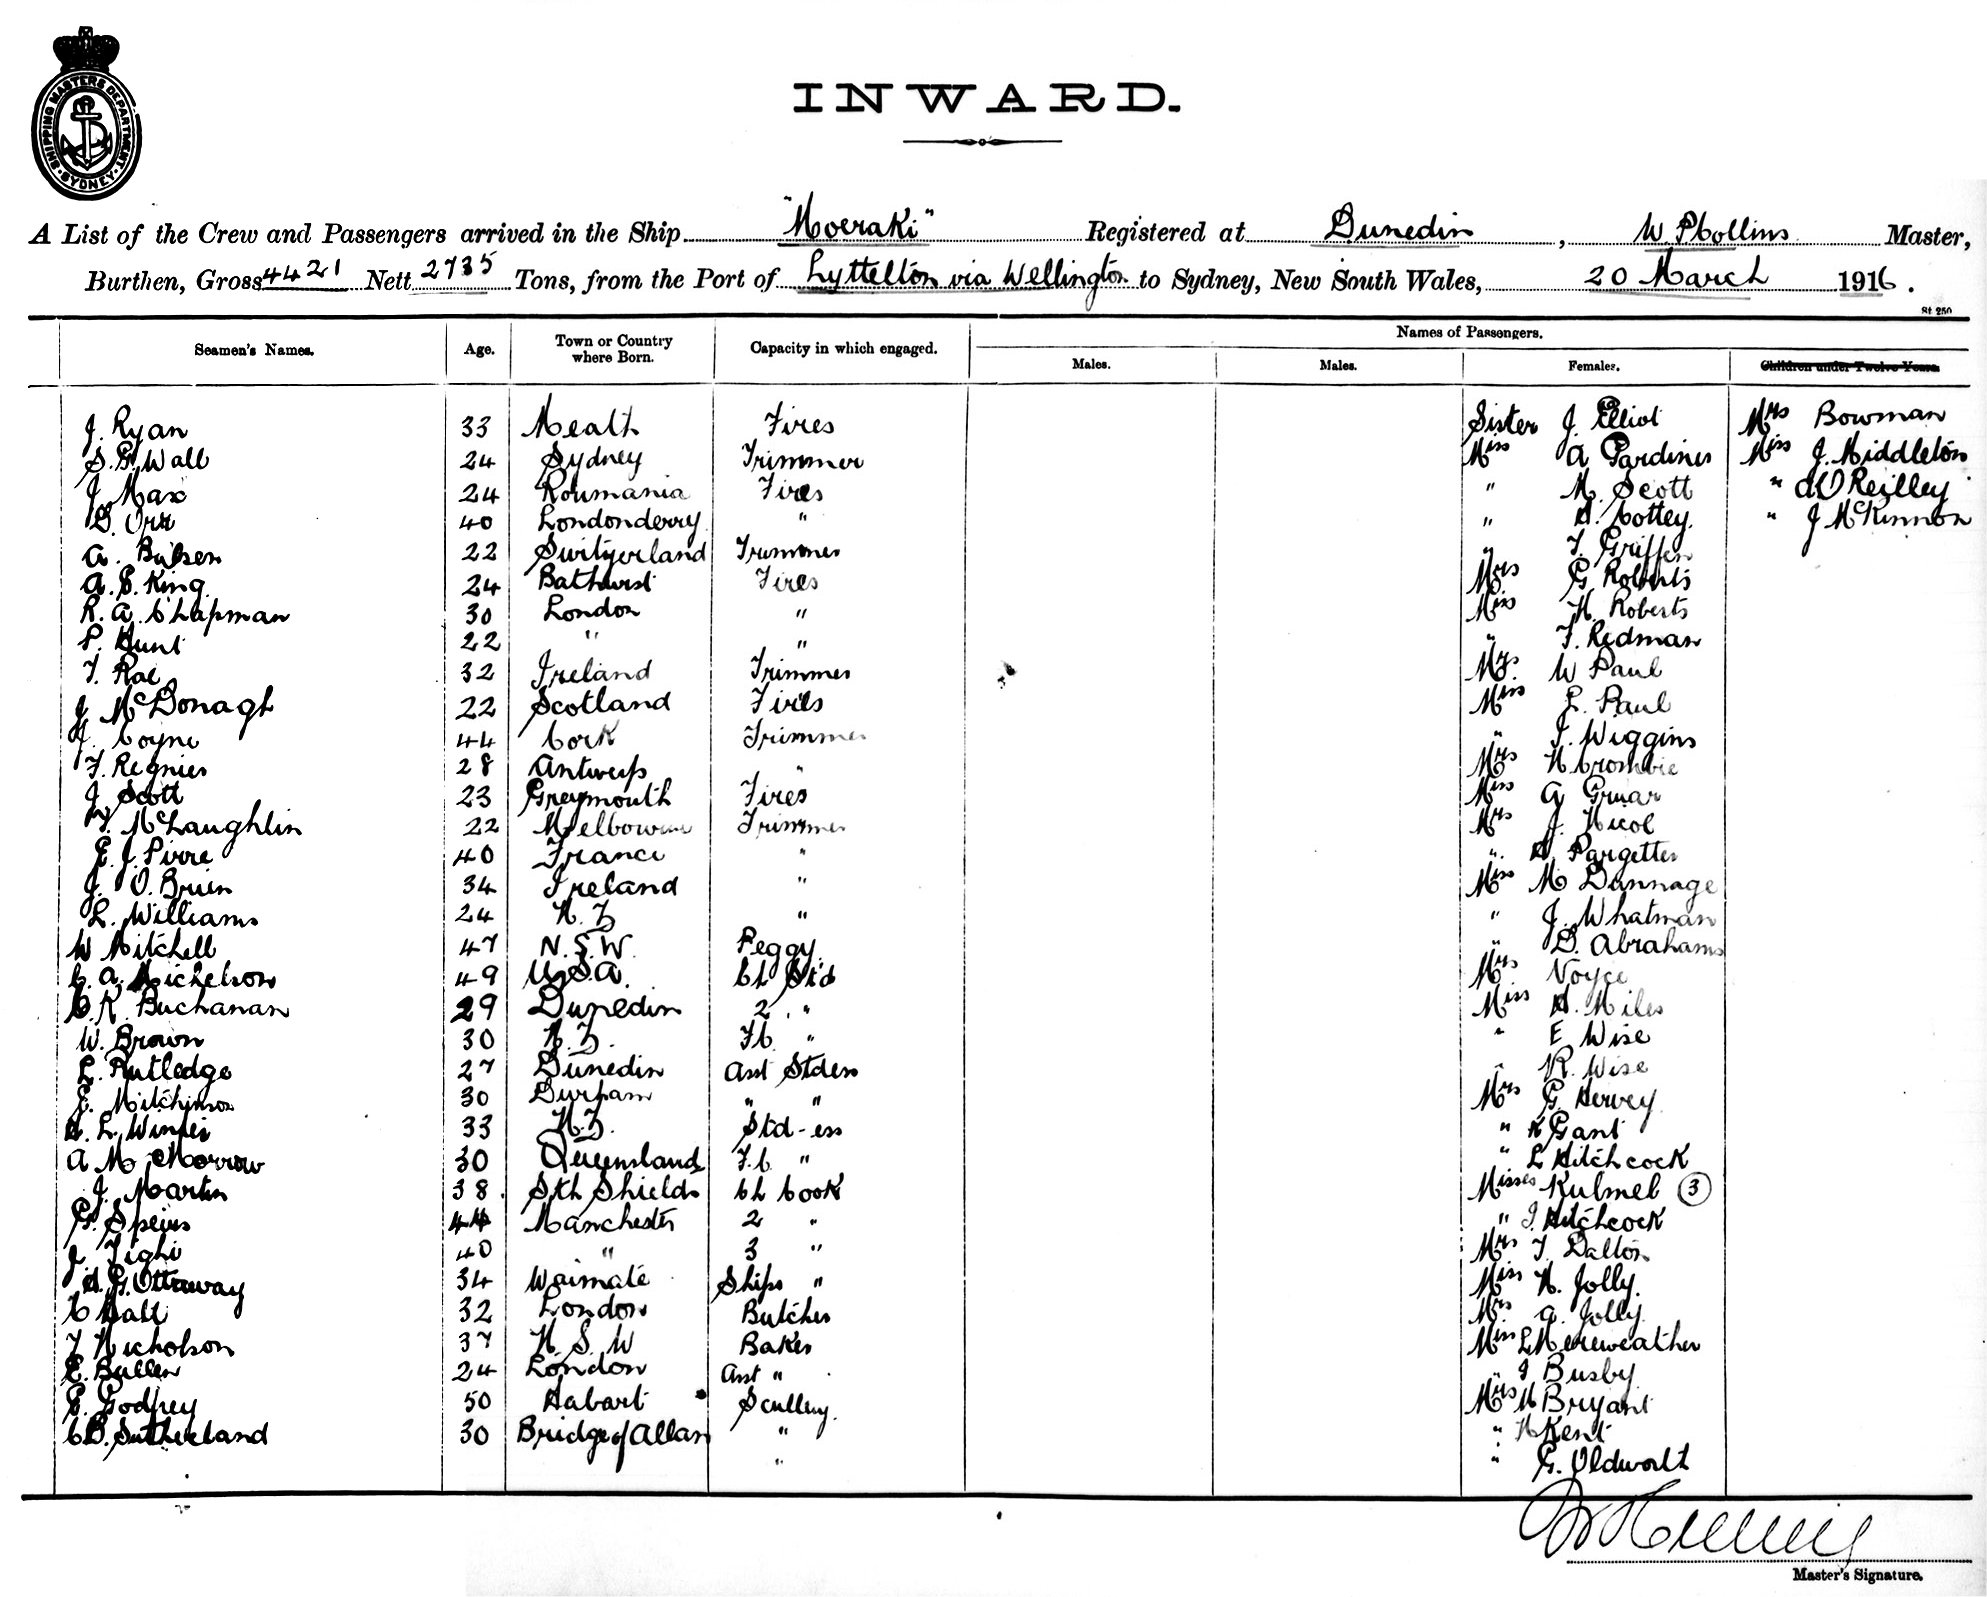 SHIPPING MASTERS DEPARTMENT SYDNEY
INWARD.
A List of the Crew and Passengers arrived in the Ship "Moeraki" Registered at Dunedin, W P Collins Master,
Burthen, Gross 4421 Nett 2735 Tons, from the Port of Lyttelton via Wellington to Sydney, New South Wales, 20 March 1916.
St 250
Seamen's Names. Age. Town or Country where Born. Capacity in which engaged. Names of Passengers.
Males. Males. Females. Children under Twelve Years.
J. Ryan 33 Meath Fires Sister J. Elliot Mrs Bowman
S. G. Wall 24 Sydney Trimmer Miss A Gardiner Miss J. Middleton
J Max 24 Roumania Fires " M. Scott " O'Reilley
G. Orr 40 Londonderry " " Cottey " J McKinnon
A. 22 Switzerland Trimmer " T. Griffen
A. E. King 24 Bathurst Fires Mrs G Roberts
R. A. Chapman 30 London " Miss H. Roberts
P. Hunt 22 " " " F. Redman
T. Rae 32 Ireland Trimmer Mrs. W Paul
J McDonagh 22 Scotland Fires Miss L. Paul
J. Coyne 44 Cork Trimmer " J. Wiggins
F. Regnier 28 Antwerp " Mrs H Crombie
J Scott 23 Greymouth Fires Miss G Gruar
McLaughlin 22 Melbourne Trimmer Mrs J. Nicol
E. J. Pirre 40 France " " Pargetter
J. O'Brien 34 Ireland " Miss M Dunnage
L. Williams 24 N. Z " " J. Whatman
W Mitchell 47 N. S. W. Peggy " D. Abrahams
C. A. Michelson 49 U. S. A. Ch Std Mrs Noyce
C. R. Buchanan 29 Dunedin 2 " Miss H. Miles
W. Brown 30 N. Z. F.C. " " E Wise
L. Rutledge 27 Dunedin Asst Stdess " R. Wise
E. Mitchinson 30 Durham " " Mrs G Hervey
H. L. Winter 33 N. Z. Std-ess " K Gant
A M Morrow 30 Queensland F.C. " " L Hitchcock
J. Martin 38 Sth Shields Ch Cook Misses Kulmel (3)
G. Speirs 44 Manchester 2 " " J. Hitchcock
J Tighi 40 " 3 " Mrs T Dalton
H. G. Ottaway 34 Waimate Ships " Miss H. Jolly.
C Hall 32 London Butcher Mrs A. Jolly
T Nicholson 37 N. S. W Baker Miss L Mereweather
E. Bullen 24 London Asst " " J Busby
E. Godfrey 50 Hobart Scullery Mrs M Bryant
C. B. Sutherland 30 Bridge of Allan " " H Kent
" " G. Oldworth
Master's Signature.